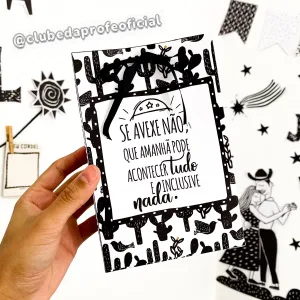 @clubedaprofeoficial
SE AVEXE NÃO,
QUE AMANHÃ PODE
ACONTECER tudo
E INCLUSIVE
nada.